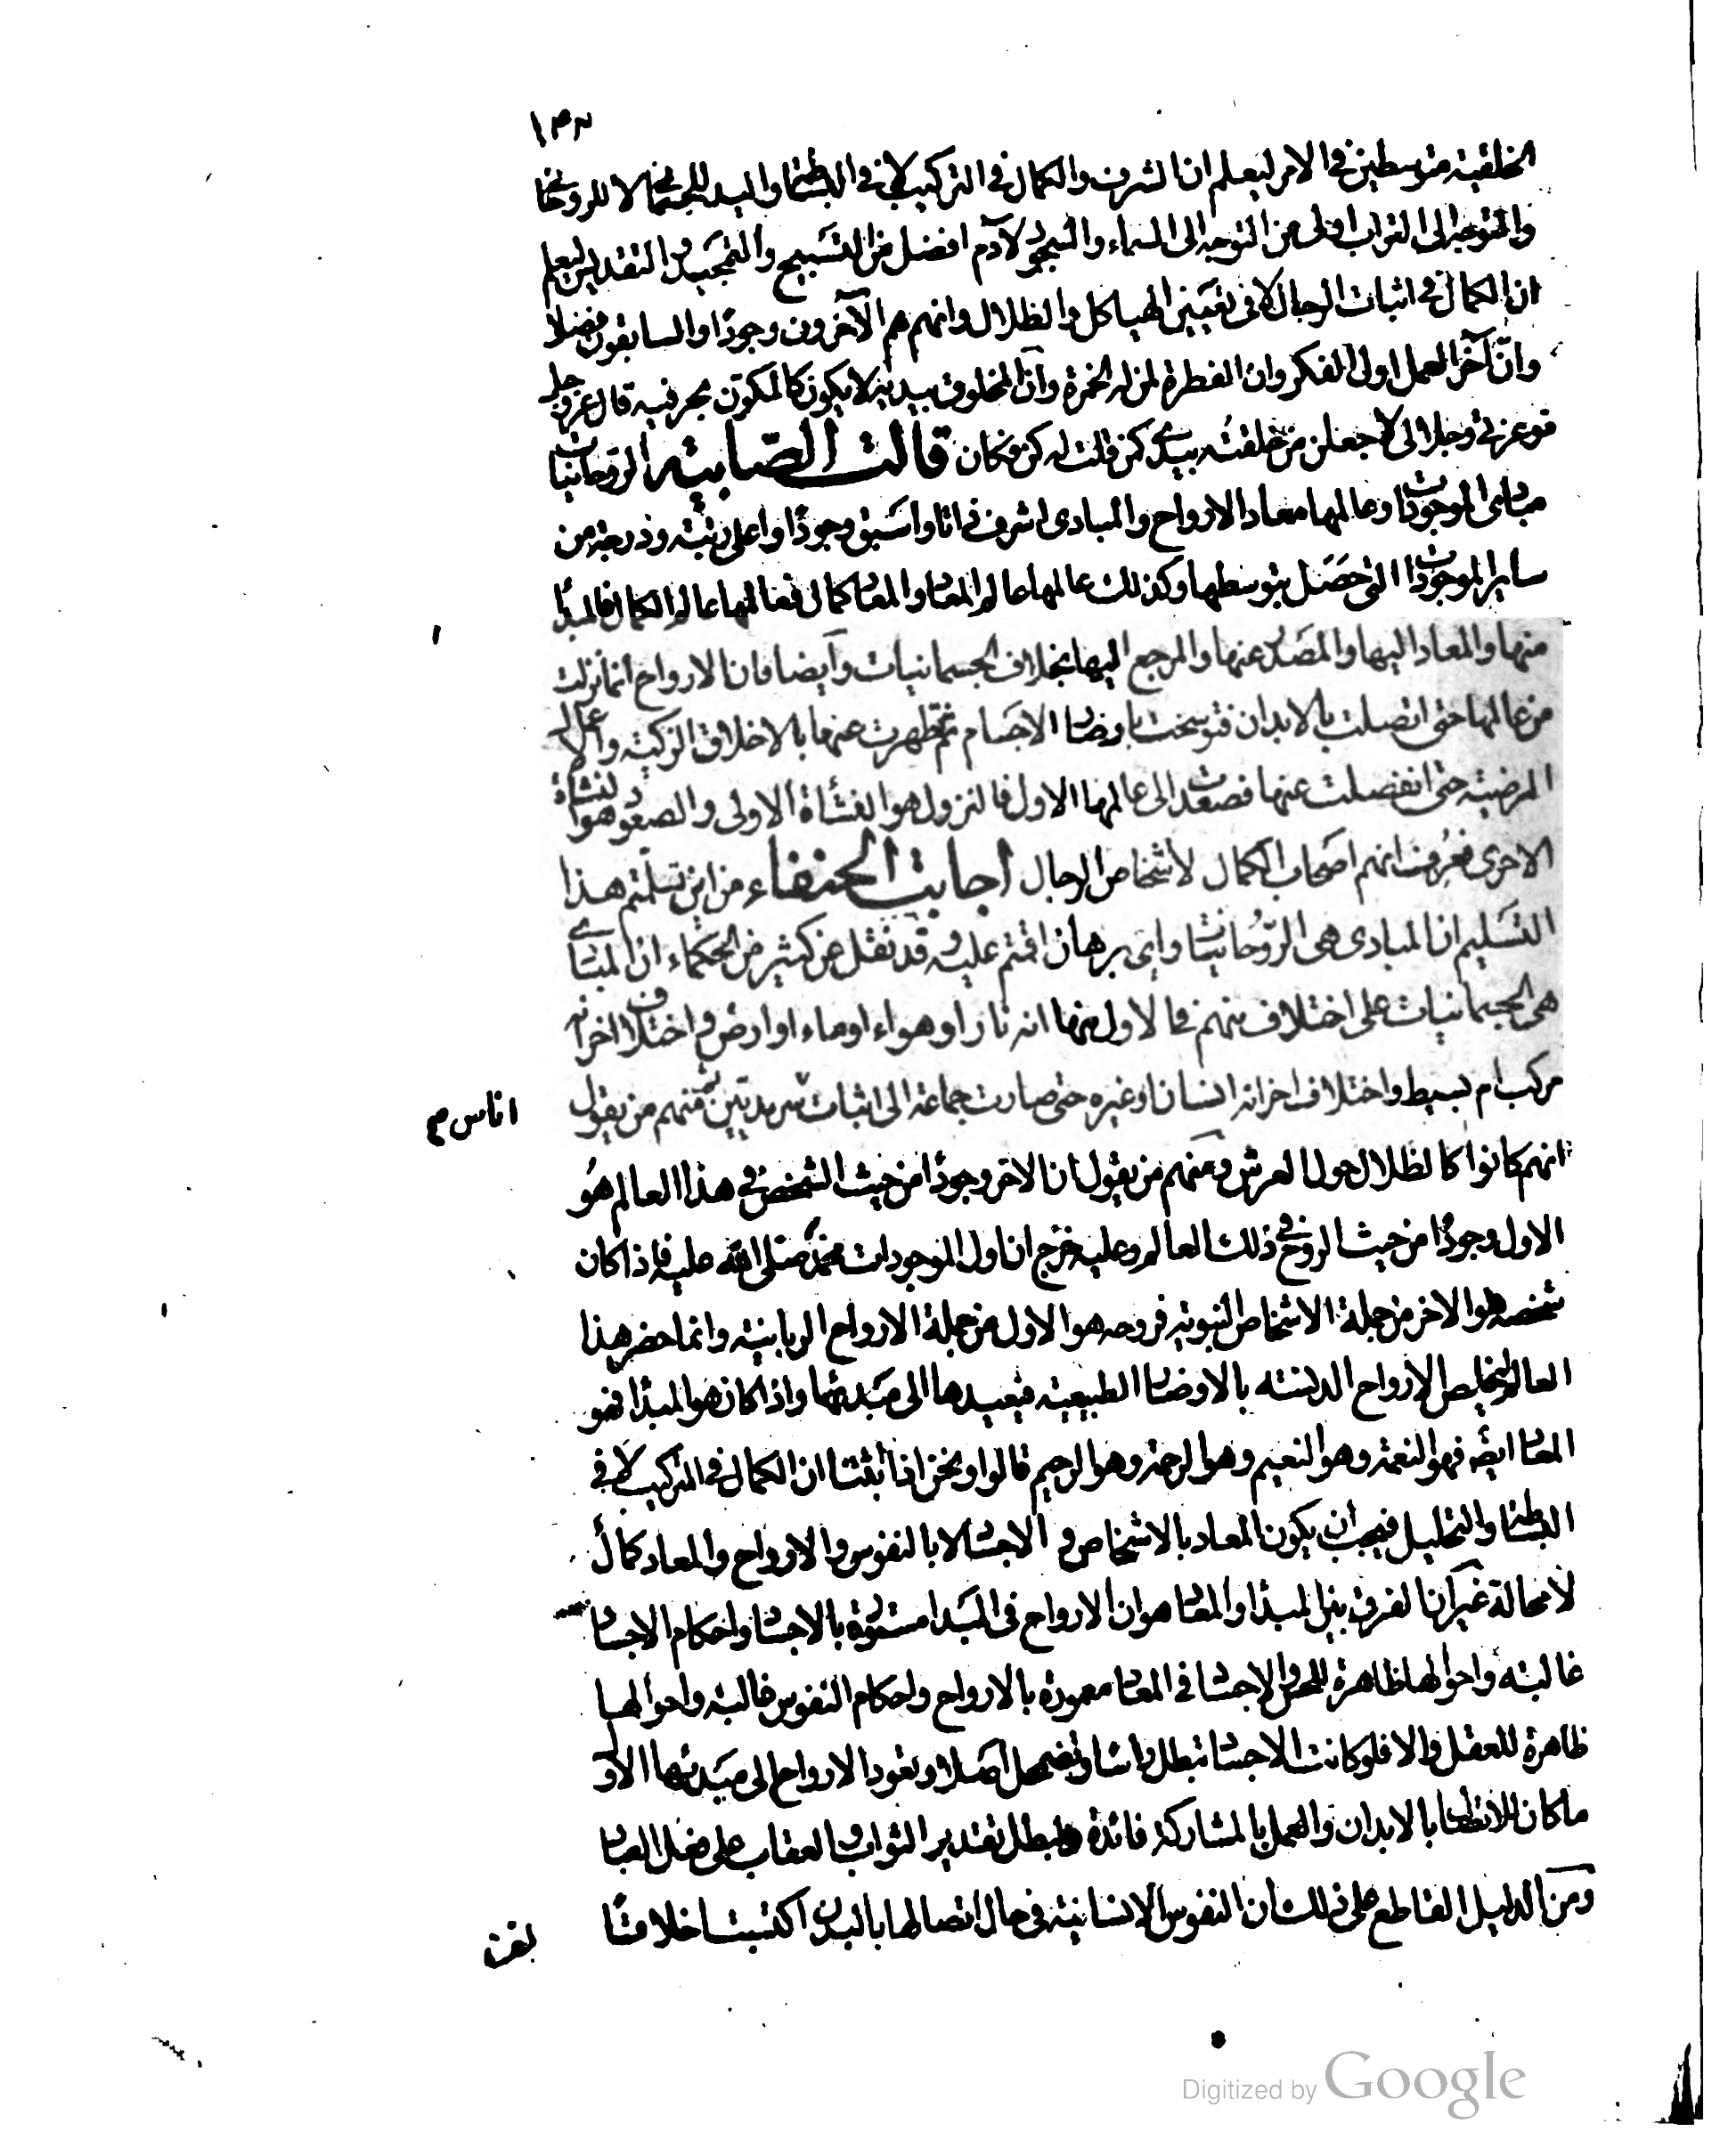 ١٣٢
الخلقية متوسطين في الامر ليعلم ان الشرف والكمال في التركيب لا في البساطة واليد للجسماني لا للروحاني
والتوجه الى التراب اولى من التوجه الى السماء والسجود لآدم افضل من التسبيح والتمجيد والتقديس ليعلم
ان الكمال في اثبات الرجال لا في تعيين الهياكل والظلال وانهم هم الآخرون وجودًا والسابقون فضلا
وانّ آخر العمل اول الفكر وان الفطرة لمن له الخمرة وانّ المخلوق بيديه لا يكون كالمكوّن بحرفيه قال عز وجل
فوعزتي وجلالي لا جعلن من خلقته بيدي كمن قلت له كن فكان قالت الصابية الروحانيات
مبادى الموجودات وعالمها معاد الارواح والمبادى اشرف ذاتا واسبق وجودًا واعلى رتبة ودرجة من
ساير الموجودات التى حصل بتوسطها وكذلك عالمها عالم المعاد والمعاد كمال فعالمها عالم الكمال فالمبدأ
منها والمعاد اليها والمصدر عنها والمرجع اليها بخلاف الجسمانيات وايضا فان الارواح انما نزلت
من عالمها حتى اتصلت بالابدان فتوسخت باوضار الاجسام ثم تطهرت عنها بالاخلاق الزكية والاعمال
المرضية حتى انفصلت عنها فصعدت الى عالمها الاول فالنزول هو النشأة الاولى والصعود هو النشاة
الاخرى فعرف انهم اصحاب الكمال لا شخاص الرجال اجابت الحنفاء من اين تسلمتم هذا
التسليم ان المبادى هى الروحانيات واى برهان اقمتم عليه وقد نقل عن كثير من الحكماء ان المبادى
هى الجسمانيات على اختلاف منهم فى الاول منها انه نار او هواء او ماء او ارض واختلاف اخر انه
مركب ام بسيط واختلاف اخر انه انسان او غيره حتى صارت جماعة الى اثبات سرمديين ثم منهم من يقول
اناس صح
انهم كانوا كالظلال حول العرش ومنهم من يقول ان الاخر وجودًا من حيث الشخص في هذا العالم هو
الاول وجودًا من حيث الروح في ذلك العالم وعليه خرج ان اول الموجودات محمد صلى الله عليه فاذا كان
شخصه هو الاخر من جملة الاشخاص النبوية فروحه هو الاول من جملة الارواح الربانية وانما حضر هذا
العالم ليخلص الارواح الدنسة بالاوضار الطبيعية فيعيدها الى مبدئها واذا كان هو المبدا فهو
المعاد ايضا فهو النعمة وهو النعيم وهو الرحمة وهو الرحيم قالوا ونحن اذا اثبتنا ان الكمال في التركيب لا في
البساطة والتحليل فيجب ان يكون المعاد بالاشخاص و الاجساد لا بالنفوس والارواح والمعاد كمال
لا محالة غير ان الفرق بين المبدا والمعاد هو ان الارواح في المبدا مستورة بالاجساد واحكام الاجساد
غالبة واحوالها ظاهرة للحس والاجساد في المعاد مغمورة بالارواح واحكام النفوس غالبة واحوالها
ظاهرة للعقل والا فلو كانت الاجساد تبطل راسا وتضمحل اصلا وتعود الارواح الى مبدئها الاول
ما كان للاتصال بالابدان والعمل بالمشاركة فائدة ولبطل تقدير الثواب والعقاب على فعل العباد
ومن الدليل القاطع على ذلك ان النفوس الانسانية في حال اتصالها بالبدن اكتسبت اخلاقا
Digitized by Google